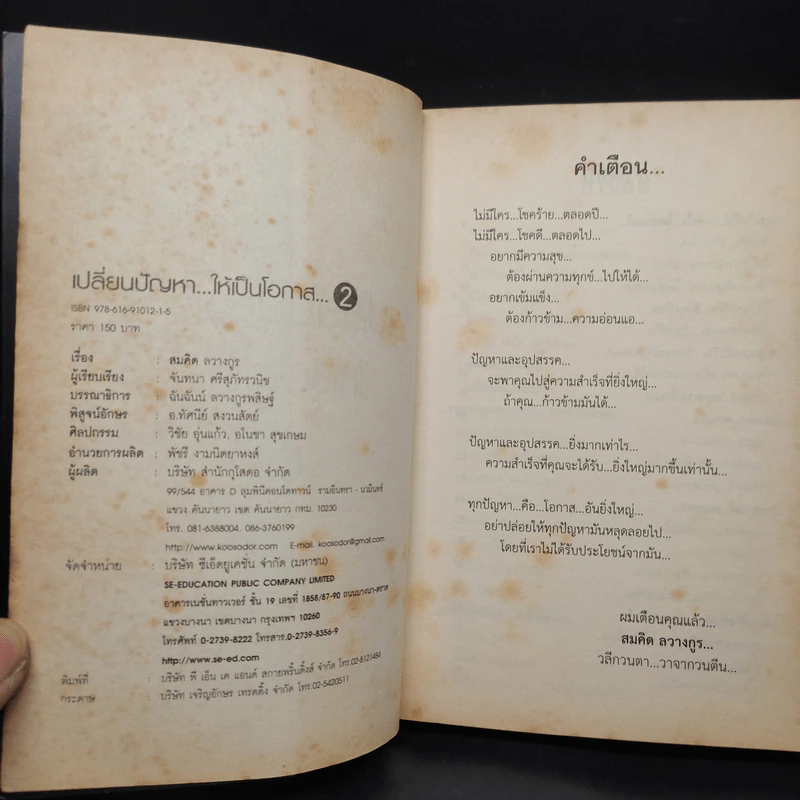 เปลี่ยนปัญหา...ให้เป็นโอกาส... 2
ISBN 978-616-91012-1-5
ราคา 150 บาท
เรื่อง : สมคิด ลวางกูร
ผู้เรียบเรียง : จันทนา ศรีสุภัทรวนิช
บรรณาธิการ : ฉันฉันน์ ลวางกูรพสิษฐ์
พิสูจน์อักษร : อ.ทัศนีย์ สงวนสัตย์
ศิลปกรรม : วิชัย อุ่นแก้ว, อโนชา สุขเกษม
อำนวยการผลิต : พัชรี งามนิตยาหงส์
ผู้ผลิต : บริษัท สำนักกูโสดอ จำกัด
99/544 อาคาร D ลุมพินีคอนโดทาวน์ รามอินทรา - นวมินทร์
แขวง คันนายาว เขต คันนายาว กทม. 10230
โทร. 081-6388004, 086-3760199
http://www.koosodor.com E-mail. koosodor@gmail.com
จัดจำหน่าย : บริษัท ซีเอ็ดยูเคชั่น จำกัด (มหาชน)
SE-EDUCATION PUBLIC COMPANY LIMITED
อาคารเนชั่นทาวเวอร์ ชั้น 19 เลขที่ 1858/87-90 ถนนบางนา-ตราด
แขวงบางนา เขตบางนา กรุงเทพฯ 10260
โทรศัพท์ 0-2739-8222 โทรสาร.0-2739-8356-9
http://www.se-ed.com
พิมพ์ที่ : บริษัท พี เอ็น เค แอนด์ สกายพริ้นติ้งส์ จำกัด โทร.02-8121484
กระดาษ : บริษัท เจริญอักษร เทรดดิ้ง จำกัด โทร.02-5420511
คำเตือน...
ไม่มีใคร...โชคร้าย...ตลอดปี...
ไม่มีใคร...โชคดี...ตลอดไป...
อยากมีความสุข...
ต้องผ่านความทุกข์...ไปให้ได้...
อยากเข้มแข็ง...
ต้องก้าวข้าม...ความอ่อนแอ...
ปัญหาและอุปสรรค...
จะพาคุณไปสู่ความสำเร็จที่ยิ่งใหญ่...
ถ้าคุณ...ก้าวข้ามมันได้...
ปัญหาและอุปสรรค...ยิ่งมากเท่าไร...
ความสำเร็จที่คุณจะได้รับ...ยิ่งใหญ่มากขึ้นเท่านั้น...
ทุกปัญหา...คือ...โอกาส...อันยิ่งใหญ่...
อย่าปล่อยให้ทุกปัญหามันหลุดลอยไป...
โดยที่เราไม่ได้รับประโยชน์จากมัน...
ผมเตือนคุณแล้ว...
สมคิด ลวางกูร...
วลีกวนตา...วาจากวนตีน...